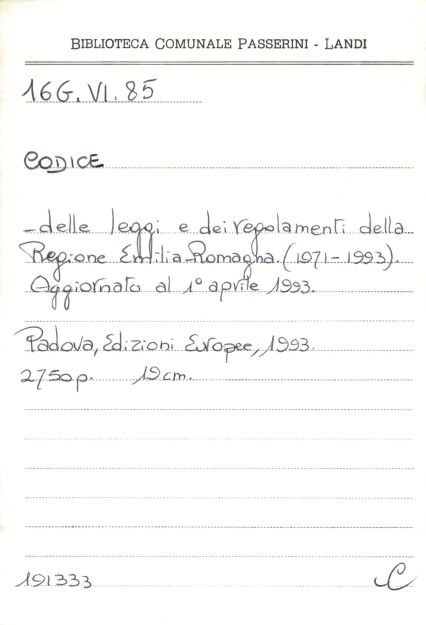 BIBLIOTECA COMUNALE PASSERINI - LANDI
16G. VI. 85
CODICE
- delle leggi e dei regolamenti della
Regione Emilia-Romagna. (1971-1993).
Aggiornato al 1° aprile 1993.
Padova, Edizioni Europee, 1993.
2750 p. 19 cm.
191333 C